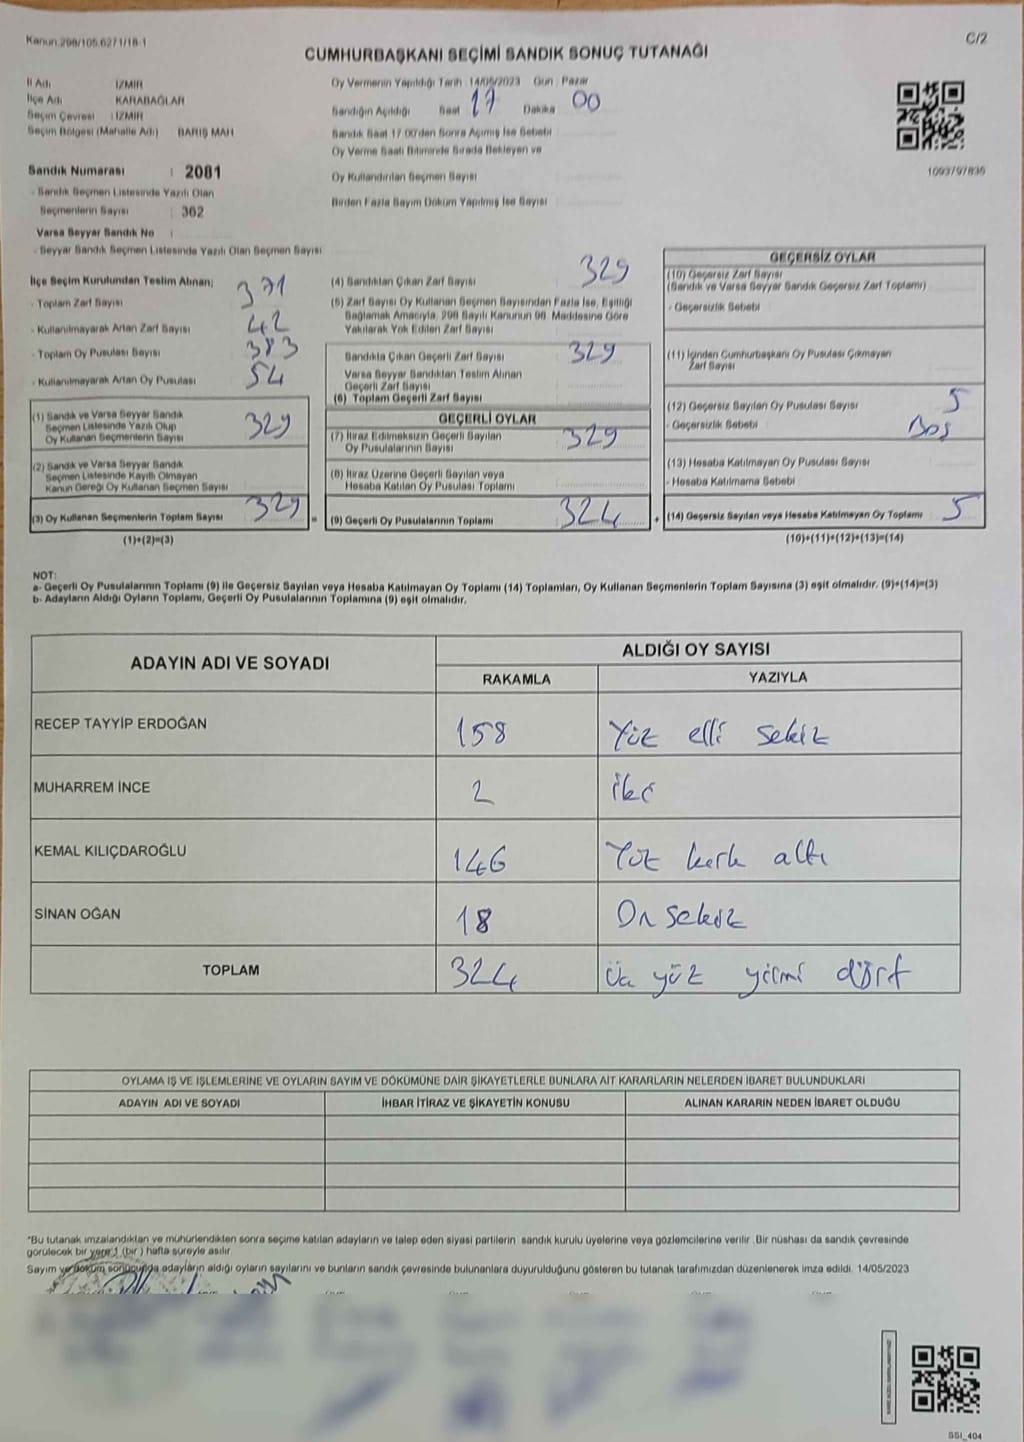 Kanun.298/105.6271/18-1
C/2
CUMHURBAŞKANI SEÇİMİ SANDIK SONUÇ TUTANAĞI
İl Adı : İZMİR
İlçe Adı : KARABAĞLAR
Seçim Çevresi : İZMİR
Seçim Bölgesi (Mahalle Adı) BARIŞ MAH
Sandık Numarası : 2081
- Sandık Seçmen Listesinde Yazılı Olan
Seçmenlerin Sayısı : 362
Varsa Seyyar Sandık No :
- Seyyar Sandık Seçmen Listesinde Yazılı Olan Seçmen Sayısı
Oy Vermenin Yapıldığı Tarih : 14/05/2023 Gün : Pazar
Sandığın Açıldığı Saat 17 Dakika 00
Sandık Saat 17.00'den Sonra Açılmış İse Sebebi
Oy Verme Saati Bitiminde Sırada Bekleyen ve
Oy Kullandırılan Seçmen Sayısı
Birden Fazla Sayım Döküm Yapılmış İse Sayısı
1093797835
İlçe Seçim Kurulundan Teslim Alınan;
- Toplam Zarf Sayısı 371
- Kullanılmayarak Artan Zarf Sayısı 42
- Toplam Oy Pusulası Sayısı 383
- Kullanılmayarak Artan Oy Pusulası 54
(1) Sandık ve Varsa Seyyar Sandık
Seçmen Listesinde Yazılı Olup
Oy Kullanan Seçmenlerin Sayısı 329
(2) Sandık ve Varsa Seyyar Sandık
Seçmen Listesinde Kayıtlı Olmayan
Kanun Gereği Oy Kullanan Seçmen Sayısı
(3) Oy Kullanan Seçmenlerin Toplam Sayısı 329 =
(1)+(2)=(3)
(4) Sandıktan Çıkan Zarf Sayısı 329
(5) Zarf Sayısı Oy Kullanan Seçmen Sayısından Fazla İse, Eşitliği
Sağlamak Amacıyla, 298 Sayılı Kanunun 98. Maddesine Göre
Yakılarak Yok Edilen Zarf Sayısı
Sandıkta Çıkan Geçerli Zarf Sayısı 329
Varsa Seyyar Sandıktan Teslim Alınan
Geçerli Zarf Sayısı
(6) Toplam Geçerli Zarf Sayısı
GEÇERLİ OYLAR
(7) İtiraz Edilmeksizin Geçerli Sayılan
Oy Pusulalarının Sayısı 329
(8) İtiraz Üzerine Geçerli Sayılan veya
Hesaba Katılan Oy Pusulası Toplamı
(9) Geçerli Oy Pusulalarının Toplamı 324 +
GEÇERSİZ OYLAR
(10) Geçersiz Zarf Sayısı
(Sandık ve Varsa Seyyar Sandık Geçersiz Zarf Toplamı)
- Geçersizlik Sebebi
(11) İçinden Cumhurbaşkanı Oy Pusulası Çıkmayan
Zarf Sayısı
(12) Geçersiz Sayılan Oy Pusulası Sayısı 5
- Geçersizlik Sebebi Boş
(13) Hesaba Katılmayan Oy Pusulası Sayısı
- Hesaba Katılmama Sebebi
(14) Geçersiz Sayılan veya Hesaba Katılmayan Oy Toplamı 5
(10)+(11)+(12)+(13)=(14)
NOT:
a- Geçerli Oy Pusulalarının Toplamı (9) ile Geçersiz Sayılan veya Hesaba Katılmayan Oy Toplamı (14) Toplamları, Oy Kullanan Seçmenlerin Toplam Sayısına (3) eşit olmalıdır. (9)+(14)=(3)
b- Adayların Aldığı Oyların Toplamı, Geçerli Oy Pusulalarının Toplamına (9) eşit olmalıdır.
ADAYIN ADI VE SOYADI
ALDIĞI OY SAYISI
RAKAMLA YAZIYLA
RECEP TAYYİP ERDOĞAN 158 Yüz elli sekiz
MUHARREM İNCE 2 iki
KEMAL KILIÇDAROĞLU 146 Yüz kırk altı
SİNAN OĞAN 18 On sekiz
TOPLAM 324 üç yüz yirmi dört
OYLAMA İŞ VE İŞLEMLERİNE VE OYLARIN SAYIM VE DÖKÜMÜNE DAİR ŞİKAYETLERLE BUNLARA AİT KARARLARIN NELERDEN İBARET BULUNDUKLARI
ADAYIN ADI VE SOYADI İHBAR İTİRAZ VE ŞİKAYETİN KONUSU ALINAN KARARIN NEDEN İBARET OLDUĞU
*Bu tutanak imzalandıktan ve mühürlendikten sonra seçime katılan adayların ve talep eden siyasi partilerin sandık kurulu üyelerine veya gözlemcilerine verilir. Bir nüshası da sandık çevresinde
görülecek bir yere 1 (bir) hafta süreyle asılır
Sayım ve döküm sonucunda adayların aldığı oyların sayılarını ve bunların sandık çevresinde bulunanlara duyurulduğunu gösteren bu tutanak tarafımızdan düzenlenerek imza edildi. 14/05/2023
SSI_404